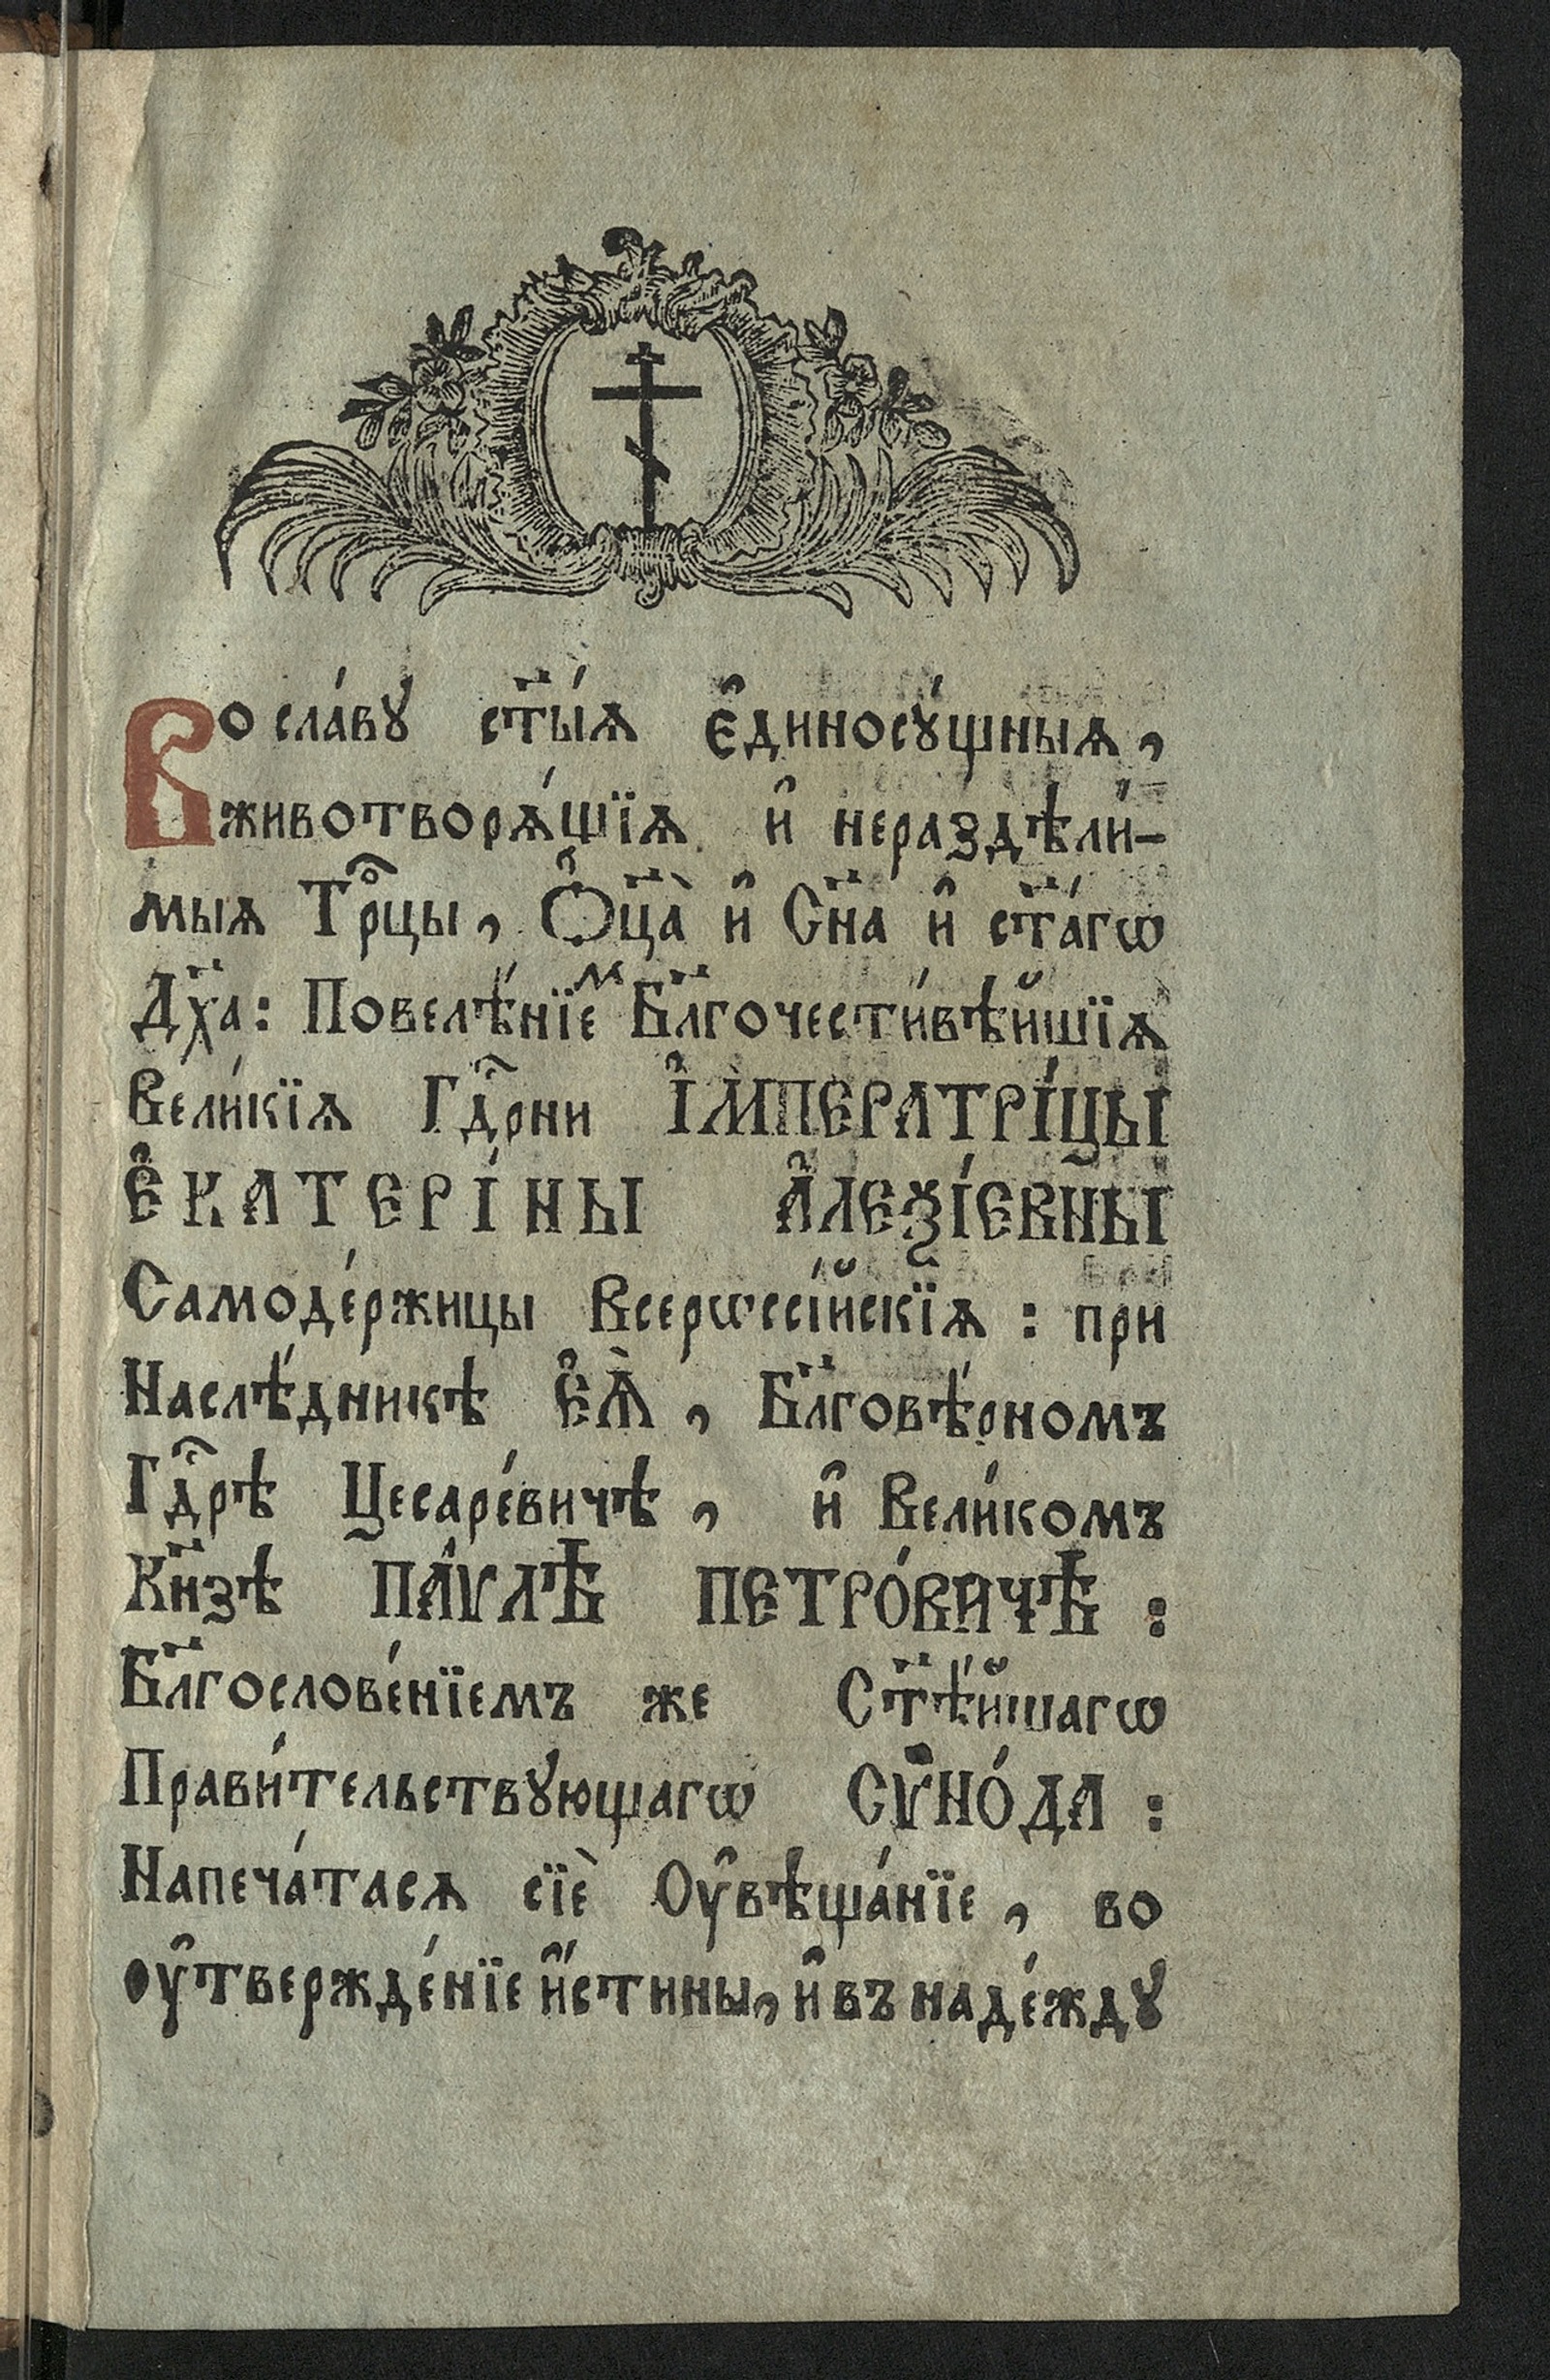 Во сла́вꙋ ст҃ы́ѧ є҆диносꙋ́щныѧ,
животворѧ́щїѧ и҆ нераздѣли́-
мыѧ Трⷪ҇цы, Ѻ҆ц҃а̀ и҆ Сн҃а и҆ ст҃а́гѡ
Дх҃а: Повелѣ́нїеⷨ Бл҃гочести́вѣйшїѧ
Вели́кїѧ Гдⷭ҇рни І҆МПЕРАТРІ́ЦЫ
Є҆КАТЕРІ́НЫ А҆ЛЕѮІ́ЕВНЫ
Самоде́ржицы Всерѡссі́йскїѧ : при
Наслѣ́дникѣ Є҆Ѧ̀, Бл҃говѣ́рномъ
Гдⷭ҇рѣ Цесаре́вичѣ, и҆ Вели́комъ
Кн҃зѣ ПА́ѴЛѢ ПЕТРО́ВИЧѢ :
Бл҃гослове́нїемъ же Ст҃ѣ́йшагѡ
Прави́тельствꙋющагѡ СѴ̈НО́ДА :
Напеча́тасѧ сїѐ Оу҆вѣща́нїе, во
оу҆твержде́нїе и҆́стины, и҆ въ наде́ждꙋ